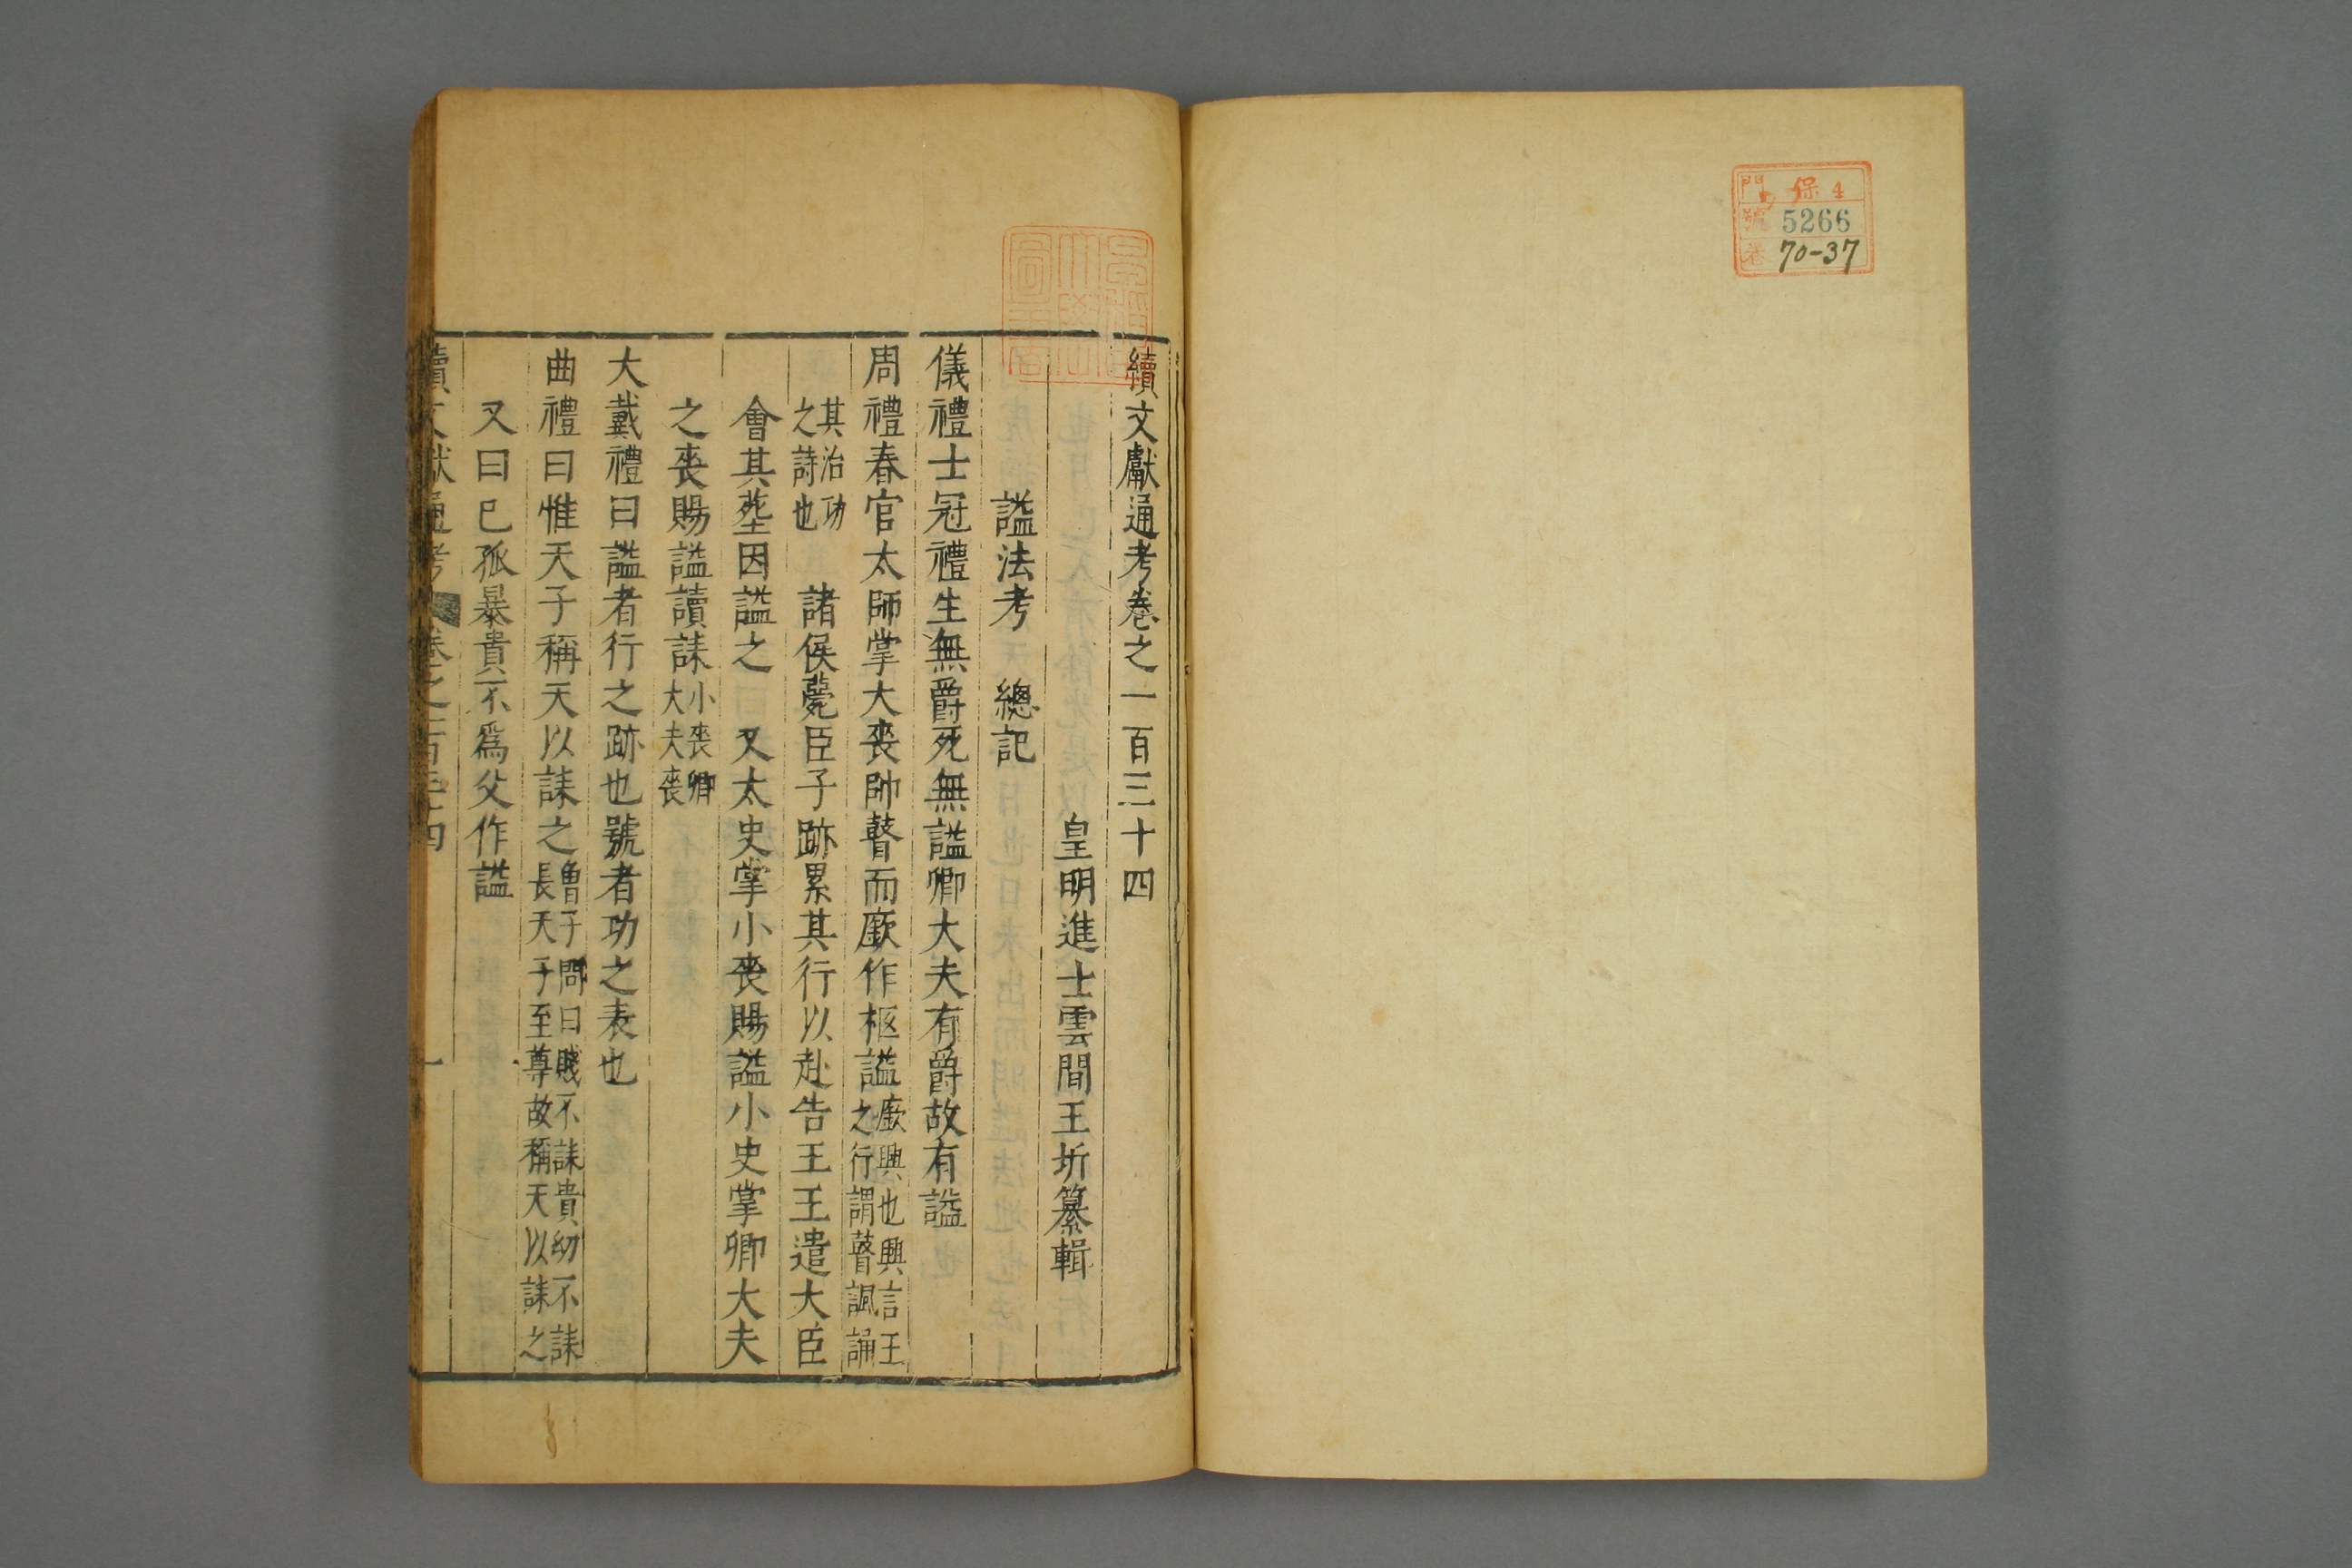 門 保4
號 5266
卷 70-37
續文獻通考卷之一百三十四
皇明進士雲間王圻纂輯
諡法考 總記
儀禮士冠禮生無爵死無謚卿大夫有爵故有謚
周禮春官太師掌大喪帥瞽而廞作柩謚廞興也興言王之行謂瞽諷誦
其治功之詩也 諸侯薨臣子跡累其行以赴告王王遣大臣
會其塟因謚之 又太史掌小喪賜謚小史掌卿大夫
之喪賜謚讀誄小喪卿大夫喪
大戴禮曰謚者行之跡也號者功之表也
曲禮曰惟天子稱天以誄之魯子問曰賤不誄貴幼不誄長天子至尊故稱天以誄之
又曰已孤暴貴不爲父作謚
續文獻通考 卷之一百三十四 一